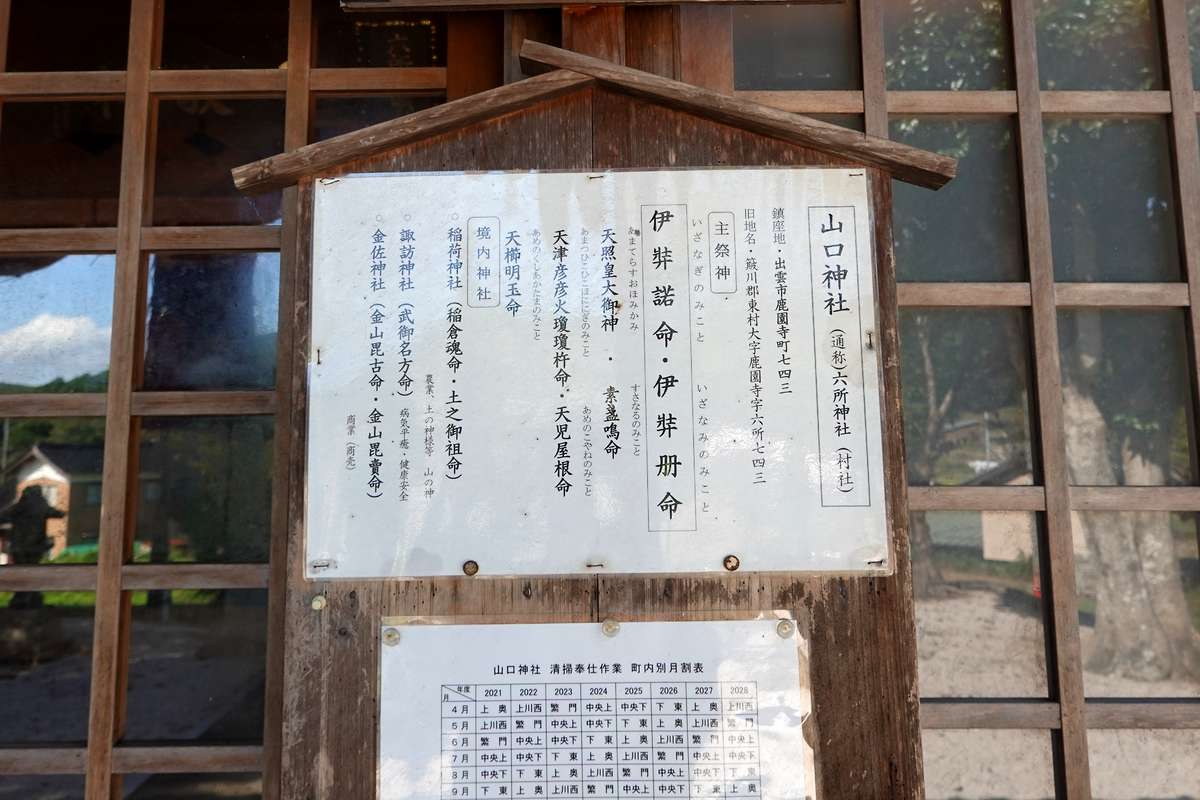 山口神社（通称）六所神社（村社）
鎮座地・出雲市鹿園寺町七四三
旧地名・簸川郡東村大字鹿園寺字六所七四三
主祭神
いざなぎのみこと　いざなみのみこと
伊弉諾命・伊弉册命
あまてらすおほみかみ　すさなるのみこと
天照皇大御神・素盞鳴命
あまつひこひこほににぎのみこと　あめのこやねのみこと
天津彦彦火瓊瓊杵命・天児屋根命
あめのくしあかたまのみこと
天櫛明玉命
境内神社
○稲荷神社（稲倉魂命・土之御祖命）
農業、土の神様等　山の神
○諏訪神社（武御名方命）病気平癒・健康安全
○金佐神社（金山毘古命・金山毘賣命）
商業（商売）
山口神社　清掃奉仕作業　町内別月割表
月 年度 2021 2022 2023 2024 2025 2026 2027 2028
4月 上奥 上川西 繁門 中央上 中央下 下東 上奥 上川西
5月 上川西 繁門 中央上 中央下 下東 上奥 上川西 繁門
6月 繁門 中央上 中央下 下東 上奥 上川西 繁門 中央上
7月 中央上 中央下 下東 上奥 上川西 繁門 中央上 中央下
8月 中央下 下東 上奥 上川西 繁門 中央上 中央下 下東
9月 下東 上奥 上川西 繁門 中央上 中央下 下東 上奥